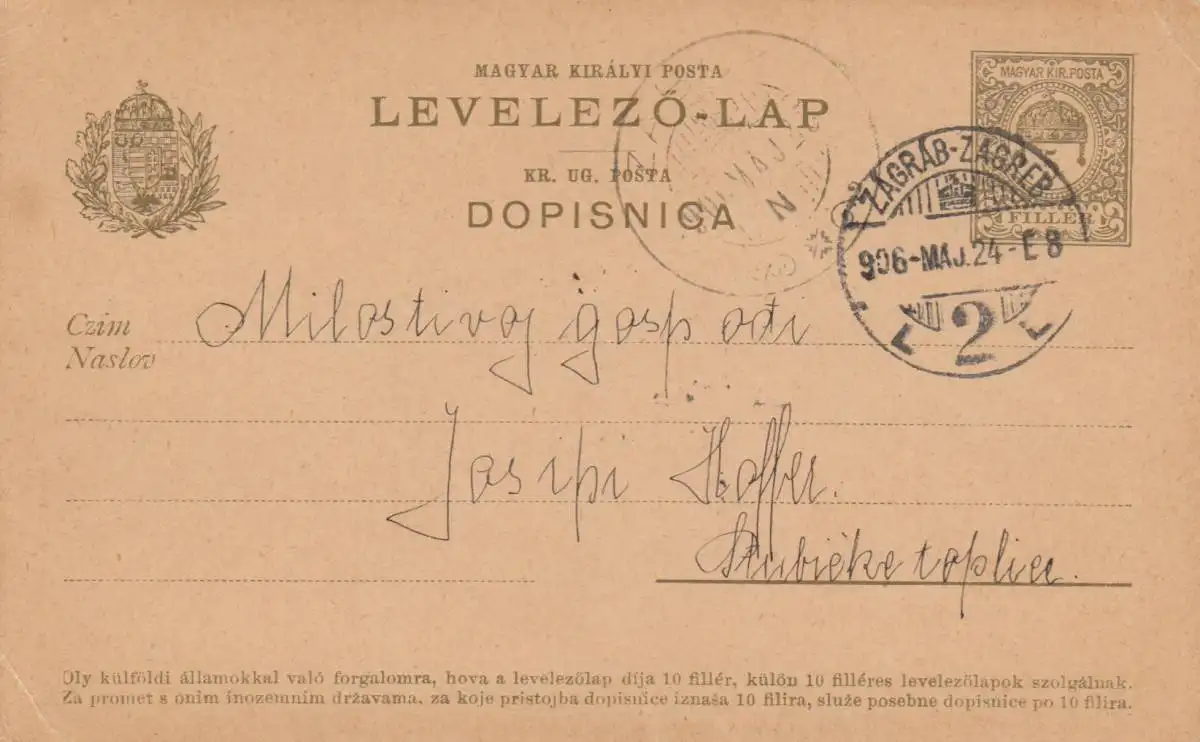 MAGYAR KIRÁLYI POSTA
LEVELEZŐ-LAP
KR. UG. POŠTA
DOPISNICA
MAGYAR KIR. POSTA
5
FILLÉR
ZÁGRÁB-ZAGREB
906-MÁJ.24-E8
2
MÁJ
N
Czim
Naslov
Milostivoj gospođi
Josipi Hoffer.
Stubičke toplice.
Oly külföldi államokkal való forgalomra, hova a levelezőlap díja 10 fillér, külön 10 filléres levelezőlapok szolgálnak.
Za promet s onim inozemnim državama, za koje pristojba dopisnice iznaša 10 filira, služe posebne dopisnice po 10 filira.